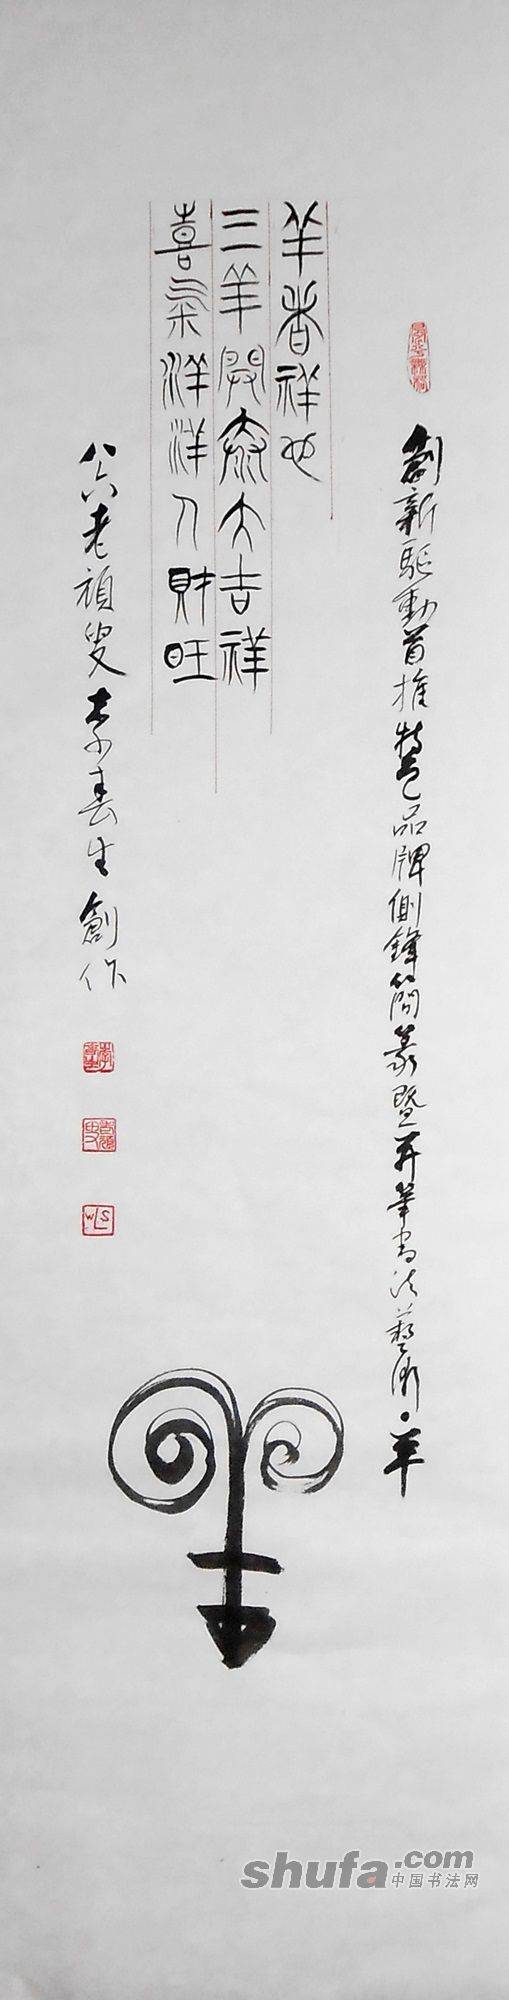 創新驅動首推特色品牌側鋒簡篆暨并筆書法藝術·羊
羊者祥也
三羊開泰大吉祥
喜氣洋洋人財旺
八六老頑叟李春生創作
WLS
shufa.com
中国书法网